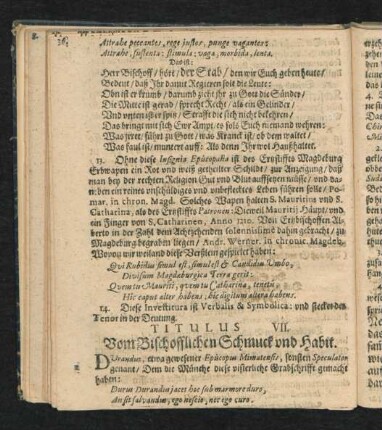 36
Attrahe peccantes, rege justos, punge vagantes:
Attrahe, sustenta: stimula: vaga, morbida, lenta.
Das ist:
Herr Bischoff / hört / der Stab / den wir Euch geben heute /
Bedeut / daß Ihr damit Regieren solt die Leute:
Obn ist er krumb / darumb zieht ihr zu Gott die Sünder /
Die Mitte ist gerad / sprecht Recht / als ein Gelinder /
Und unten ist er spitz / Straffe die sich nicht bekehren /
Das bringt mit sich Ewr Ampt, es soll Euch niemand wehren:
Was irret, führt zu Gott / was krank ist ob dem waltet /
Was faul ist / muntert auff: Als denn Ihr wol Haußhaltet.
13. Ohne diese Insignia Episcopalia ist des Ertzstiffts Magdeburg
Erbwapen ein Rot und weiß getheilter Schildt / zur Anzeigung / daß
man bey der rechten Religion Gut und Blut auffsetzen müsse / und darneben
ein reines unschüldiges und unbeflecktes Leben führen solle / Pomar.
in chron. Magd. Solches Wapen halten S. Mauritius und S.
Catharina, als des Ertzstiffts Patronen: Dieweil Mauritij Häupt / und
ein Finger von S. Catharinen, Anno 220. Von Ertzbischoffen Alberto
in der Zahl dem Achtzehenden solennissimè dahin gebracht / zu
Magdeburg begraben liegen / Andr. Werner. in chronic. Magdeb.
Wovon wir weiland diese Verslein gespielet haben:
Qui Rubidus simul est, simul est & Candidus Umbo,
Divisum Magdaburgica Terra gerit:
Quem tu Mauriti, quem tu Catharina, tenetis,
Hic caput alter habens; hic digitum altera habens.
14. Diese Investitura ist Verbalis & Symbolica: und stecket der
Tenor in der Deutung.
TITULUS VII.
Vom Bischofflichen Schmuck und Habit.
DUrandus, etwa gewesener Episcopus Mimatensis, sonsten Speculator
genant / Dem die Münche diese visierliche Grabschrifft gemacht
haben:
Durus Durandus jacet hic sub marmore duro,
An sit salvandus, ego nescio, nec ego curo.